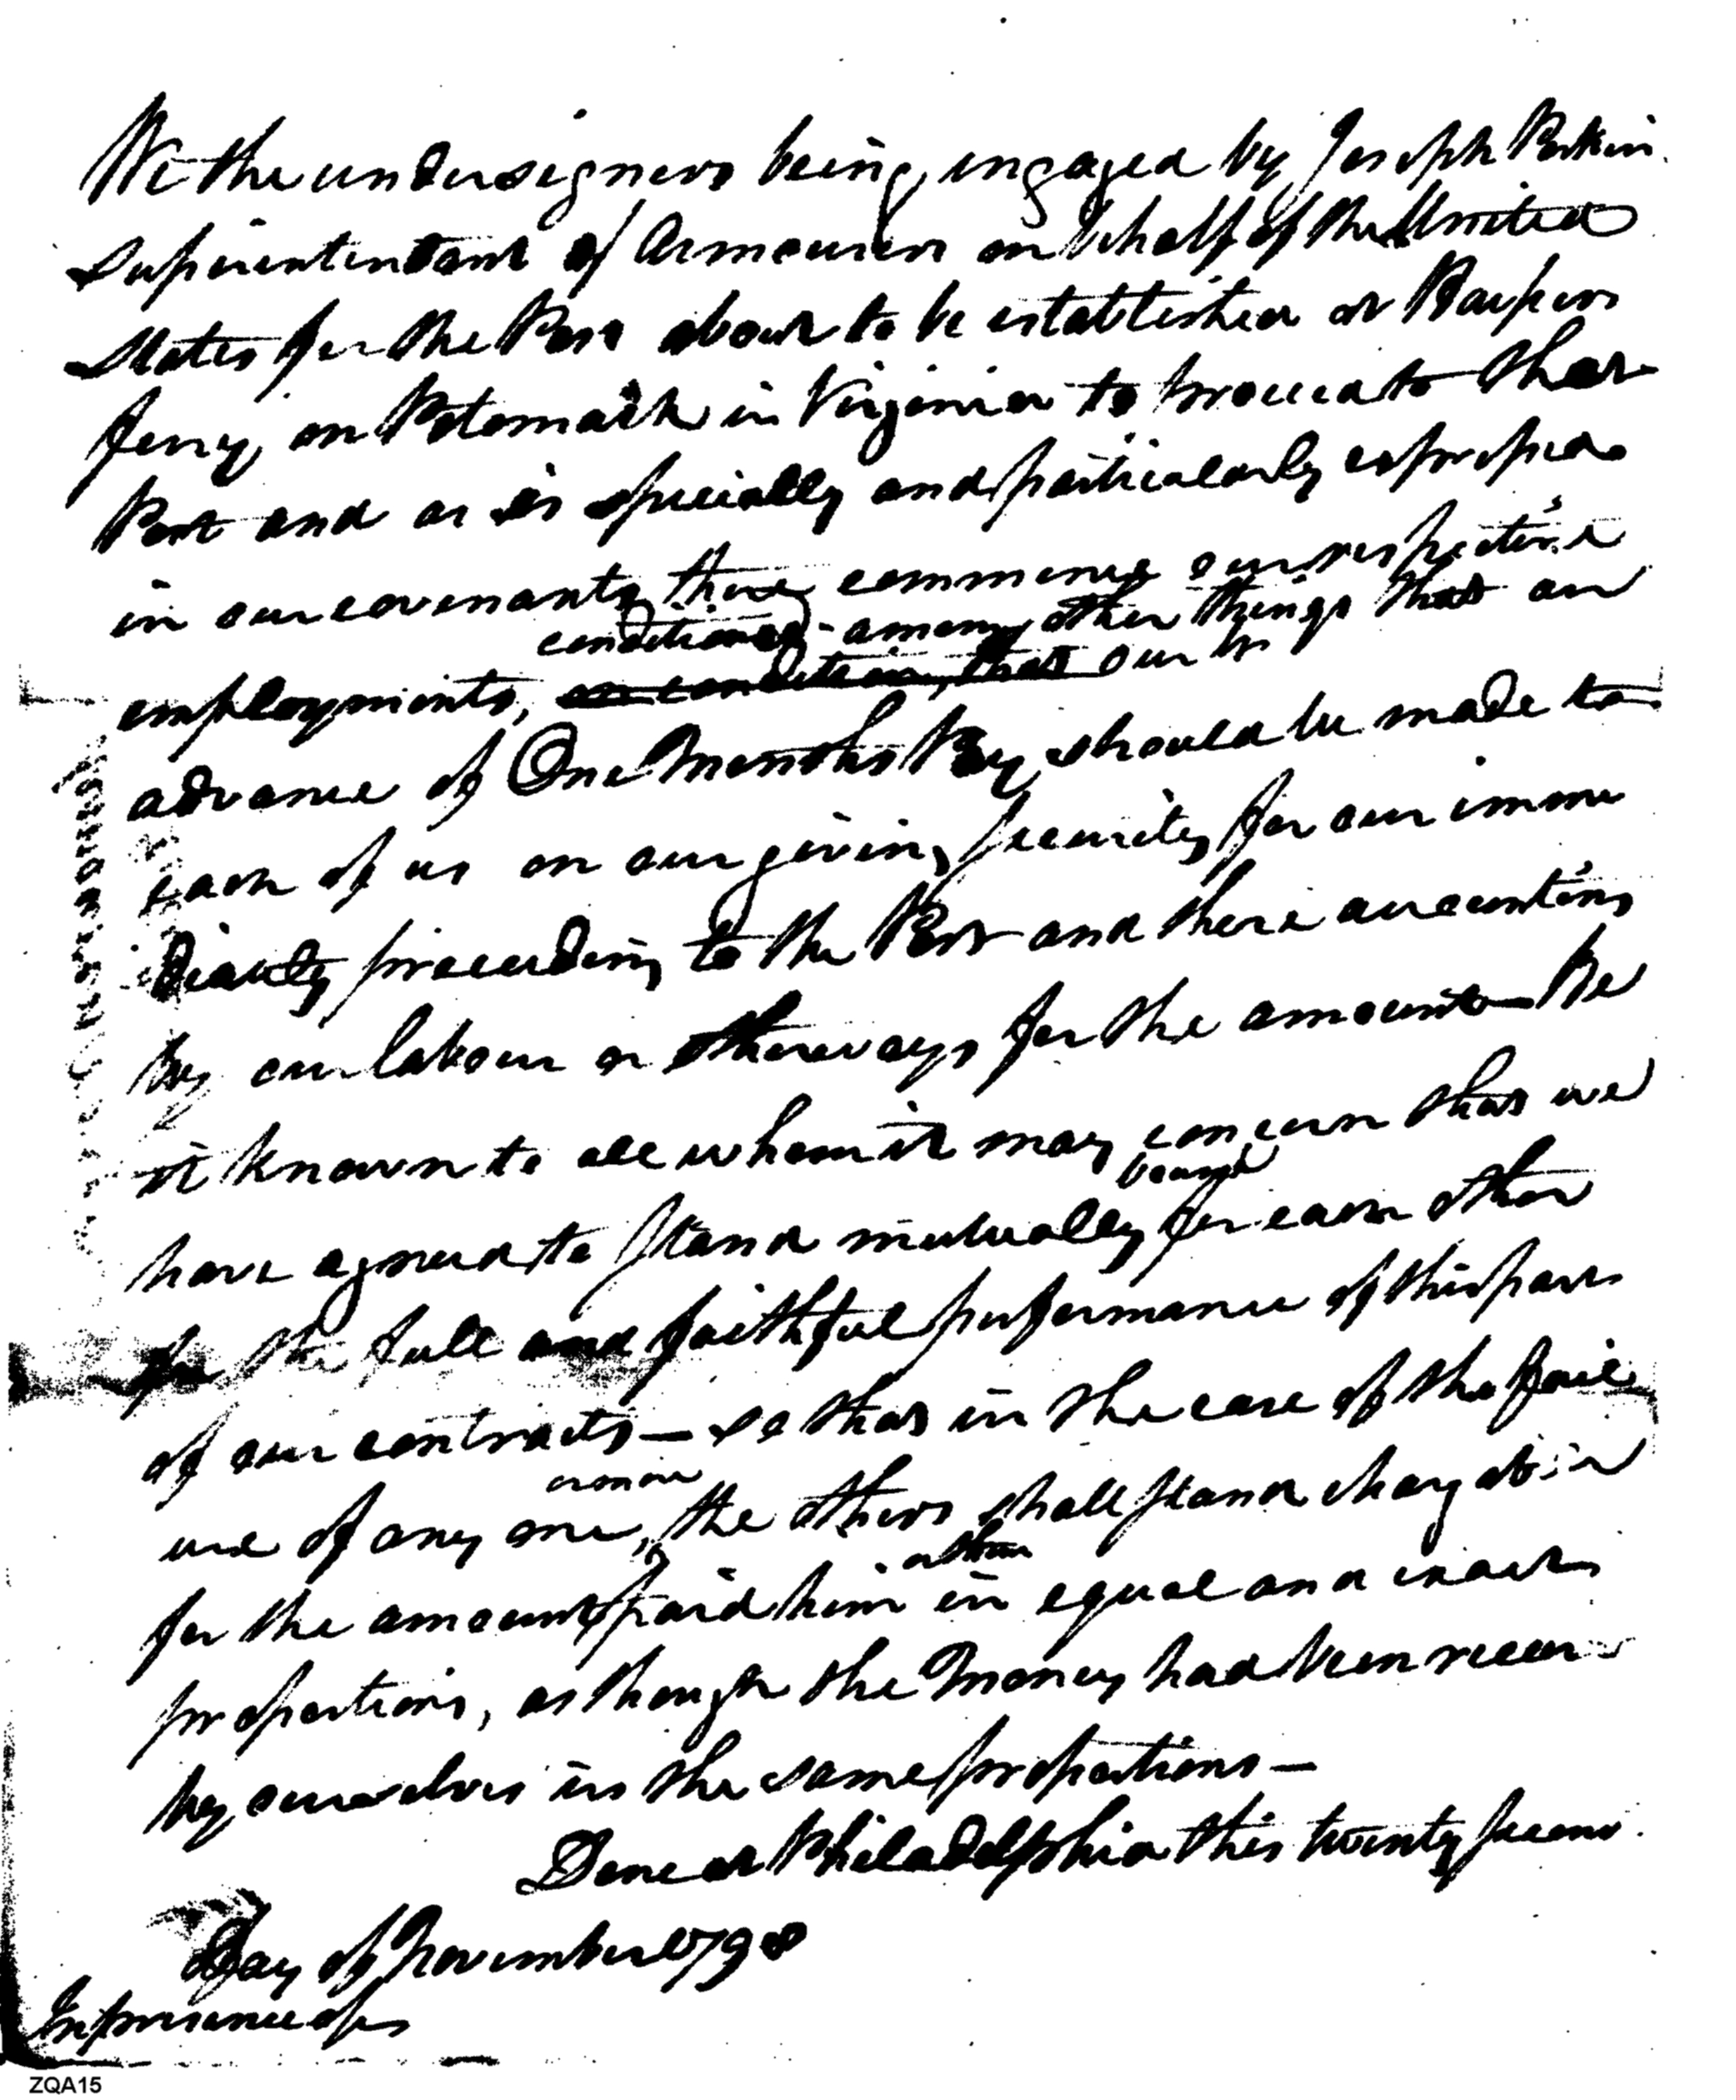 We the undersigners being engaged by Joseph Perkin
Superintendant of Armourers on behalf of the United
States for the Post about to be established at Harpers
ferry on Potomack in Virginia to proceed to that
Post and as is specially and particularly expressed
in our covenants there commence our respective
conditioned among other things that an
employments, on condition, that our
advance of One Months Pay should be made to
each of us on our giving security for our imme
diately proceeding to the Post and there accounting
by our labour or otherways for the amount – Be
it known to all whom it may concern that we
bound
have agreed to stand mutually for each other
for the full and faithful performance of this part
of our contracts — so that in the case of the fail
or more
ure of any one, the others shall stand chargable
or them
for the amount paid him in equal and exact
proportions, as though the Money had been recei
by ourselves in the same proportions —
Done at Philadelphia this twenty second
Day of November 1798
In presence of
ZQA15